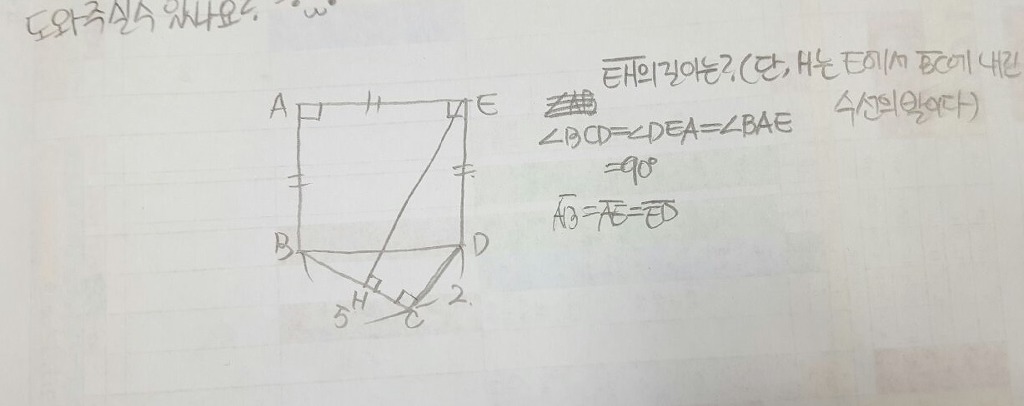 도와주실수 있나요?. ^ω^
EH의 길이는?.(단, H는 E에서 BC에 내린
수선의 발이다)
∠BCD=∠DEA=∠BAE
=90°
AB=AE=ED
A E
B D
H 2.
5 C